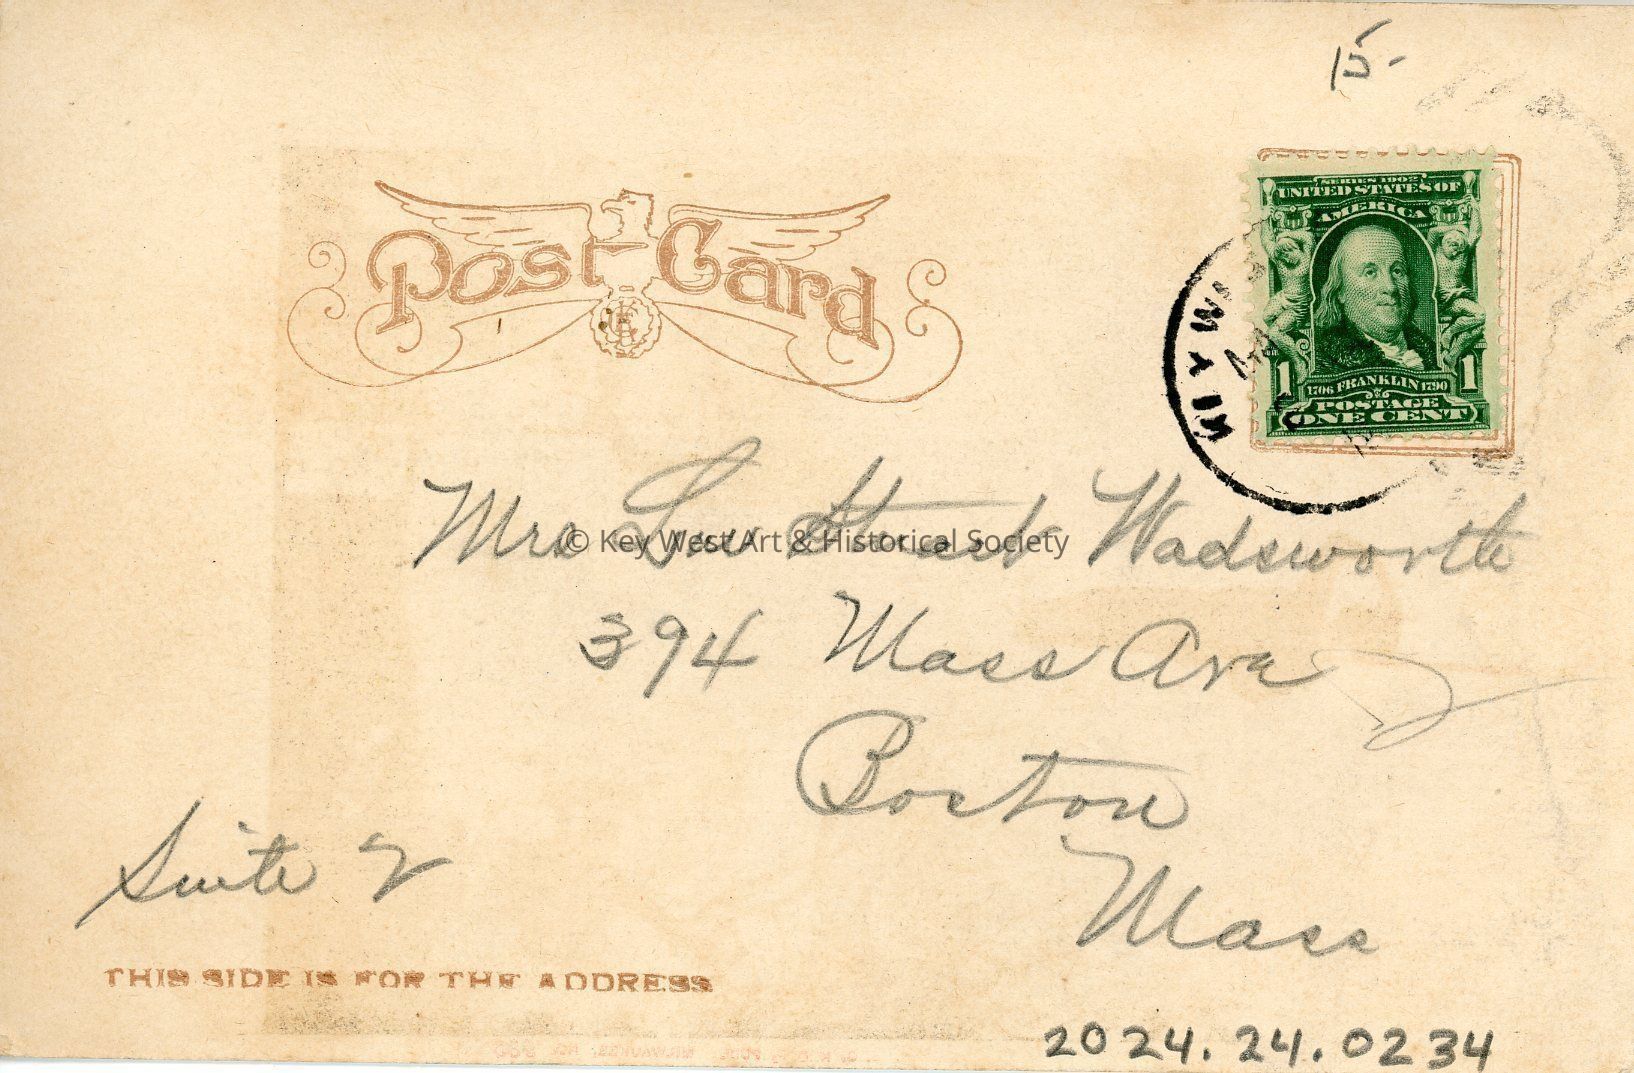 15-
Post Card
SERIES 1902
UNITED STATES OF
AMERICA
1 1706 FRANKLIN 1790 1
POSTAGE
ONE CENT
KEY WES
Mrs Wadsworth
© Key West Art & Historical Society
394 Mass Ave
Boston
Mass
Suite 2
THIS SIDE IS FOR THE ADDRESS
2024.24.0234